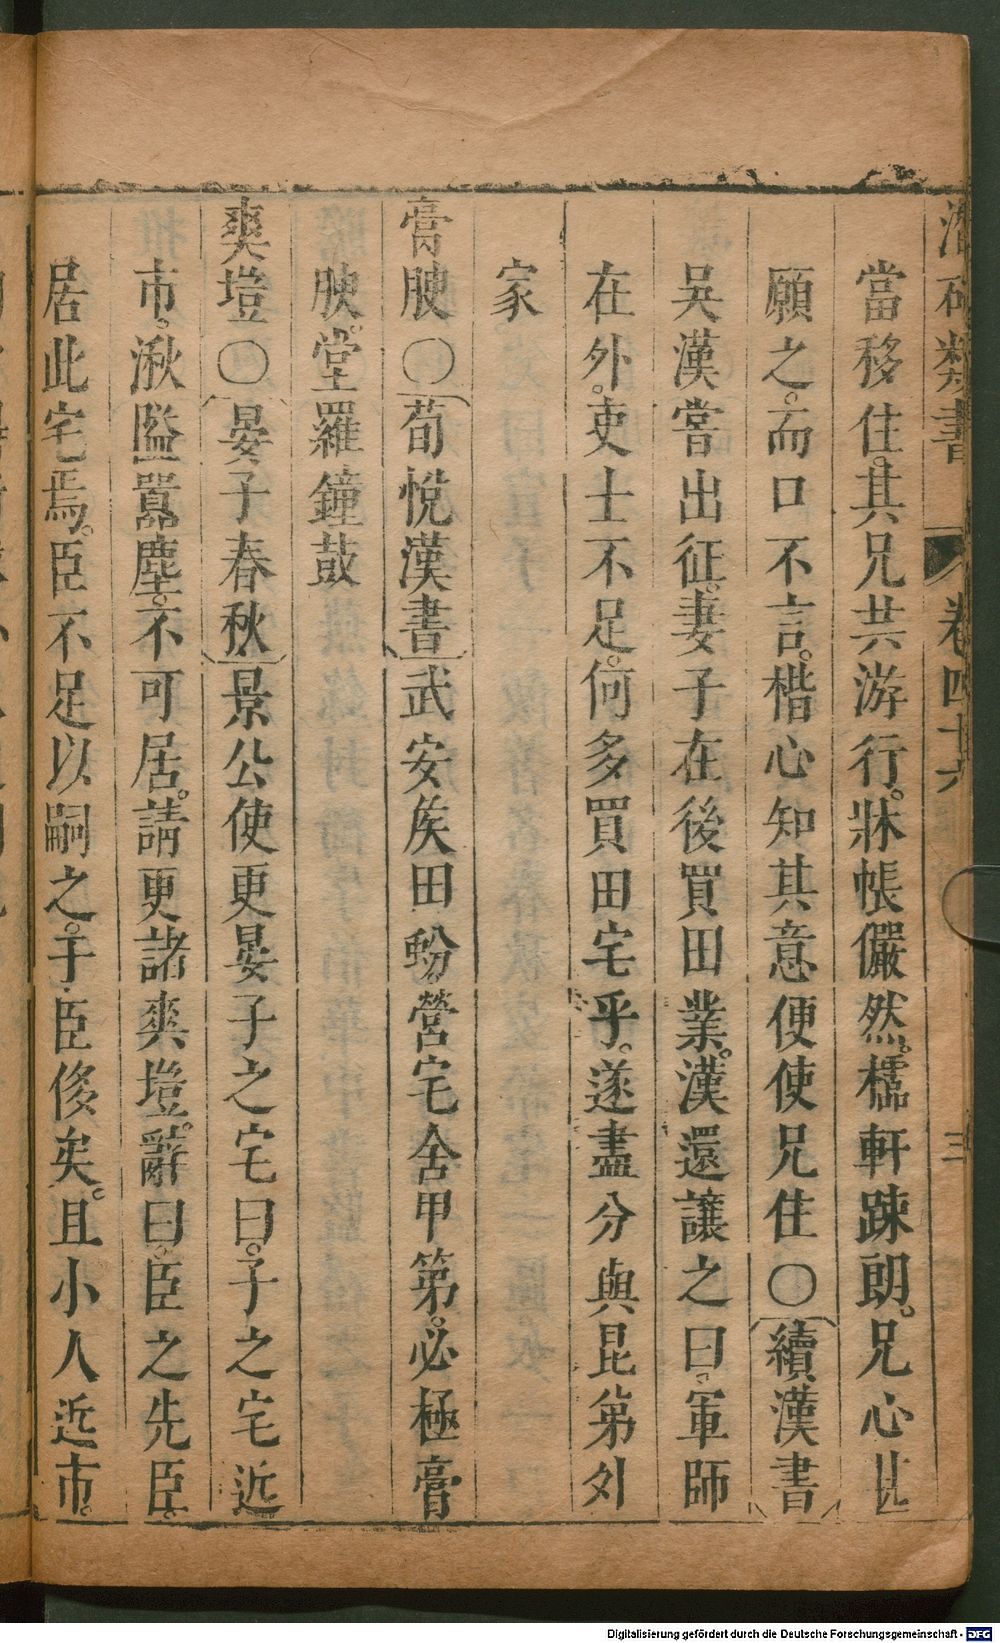 潛确類書 卷四十六 三
當移住。其兄共游行。牀帳儼然。櫺軒踈朗。兄心甚
願之。而口不言。楷心知其意便使兄住〇續漢書
吳漢嘗出征。妻子在後買田業。漢還讓之曰。軍師
在外。吏士不足。何多買田宅乎。遂盡分與昆弟外
家
膏腴〇荀悅漢書武安矦田蚡。營宅舍甲第。必極膏
腴。堂羅鐘鼓
爽塏〇晏子春秋景公使更晏子之宅曰。子之宅近
市。湫隘囂塵。不可居。請更諸爽塏。辭曰。臣之先臣。
居此宅焉。臣不足以嗣之。于臣侈矣。且小人近市。
Digitalisierung gefördert durch die Deutsche Forschungsgemeinschaft - DFG